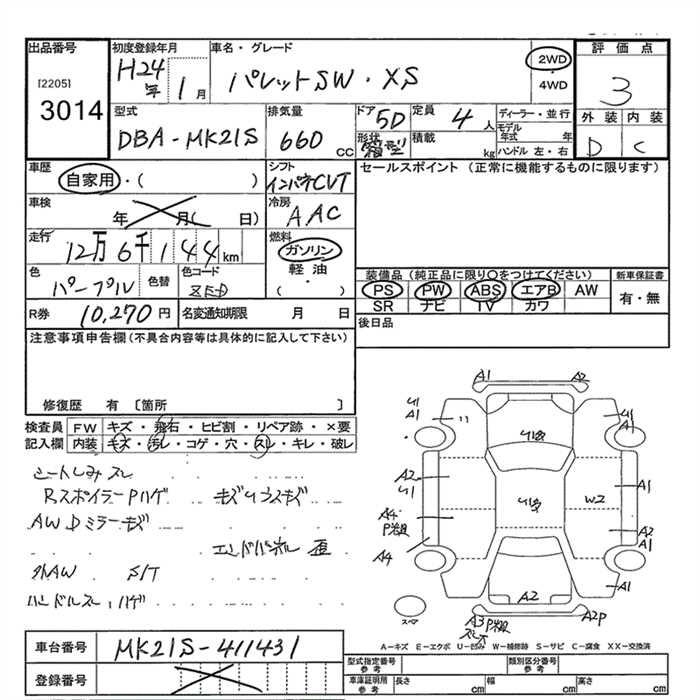 出品番号
[2205]
3014
初度登録年月
H24年 1月
車名・グレード
パレットSW・XS
2WD
・
4WD
評価点
3
外装 内装
D C
型式
DBA-MK21S
排気量
660 CC
ドア 5D
形状 箱型
定員 4 人
積載 kg
ディーラー・並行
モデル年式 年
ハンドル 左・右
車歴
自家用・( )
シフト
インパネCVT
セールスポイント (正常に機能するものに限ります)
車検
年 月( 日)
冷房
AAC
走行
12万6千144km
燃料
ガソリン
・
軽油
・
( )
色
パープル
色替
色コード
ZED
装備品 (純正品に限り○をつけてください)
PS PW ABS エアB AW
SR ナビ TV カワ
新車保証書
有・無
R券 10,270円
名変通知期限 月 日
後日品
注意事項申告欄(不具合内容等は具体的に記入して下さい)
修復歴 有 〔箇所 〕
検査員記入欄
FW キズ・飛石・ヒビ割・リペア跡・×要
内装 キズ・汚レ・コゲ・穴・スレ・キレ・破レ
シートしみ スレ
RスポイラーPハゲ
AW Dミラーキズ
エンドパネル 歪
外AW S/T
ハンドルスレ ハゲ
A1 A2
U1
A1
U1
A1
A2
U1
A1
W2
A4
P
A2
A1
A4
U1
A2
A3P A2P
スペア
A－キズ E－エクボ U－凹み W－補修跡 S－サビ C－腐食 XX－交換済
車台番号 MK21S-411431
登録番号
型式指定番号 参考
類別区分番号 参考
車庫証明所 参考
長さ cm
幅 cm
高さ cm